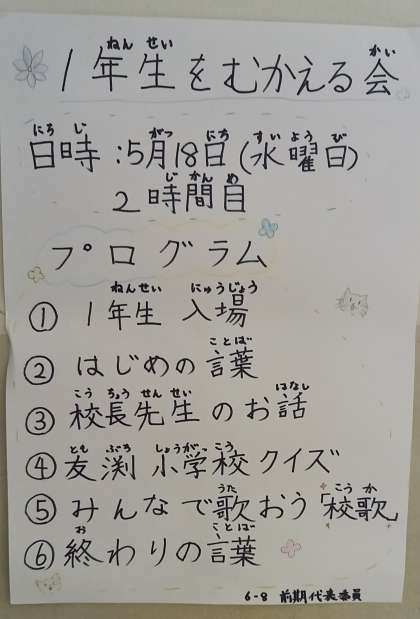 1年生をむかえる会
日時:5月18日(水曜日)
2時間目
プログラム
① 1年生 入場
② はじめの言葉
③ 校長先生のお話
④ 友渕 小学校クイズ
⑤ みんなで歌おう「校歌」
⑥ 終わりの言葉
6-8 前期代表委員